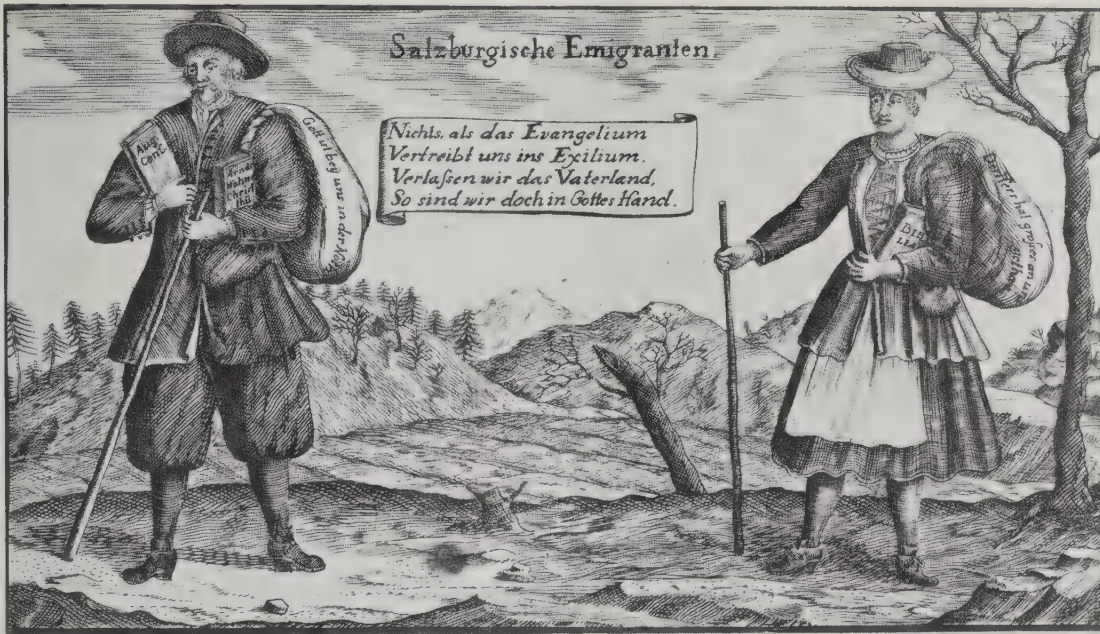 Salzburgische Emigranten.
Nichts, als das Evangelium
Vertreibt uns ins Exilium.
Verlaßen wir das Vaterland,
So sind wir doch in Gottes Hand.
Aug
Conf.
Arnds
Wahres
Christ
thū
Gott ist beÿ uns in der Noth
BIB
LIA
hat großes an uns